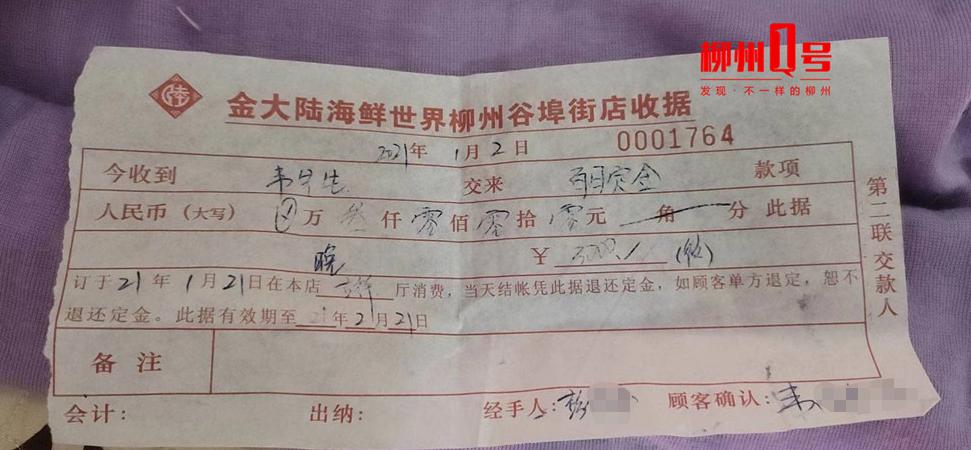 柳州Q号
发现·不一样的柳州
陆
金大陆海鲜世界柳州谷埠街店收据
2021年1月2日 0001764
今收到 韦先生 交来 定金 款项
人民币(大写) 万叁仟零佰零拾零元 角 分 此据
晚 ¥ 3000/
订于21年1月21日在本店 厅消费,当天结帐凭此据退还定金,如顾客单方退定,恕不
退还定金。此据有效期至21年2月21日
备注
会计: 出纳: 经手人:彭 顾客确认:韦
第二联交款人